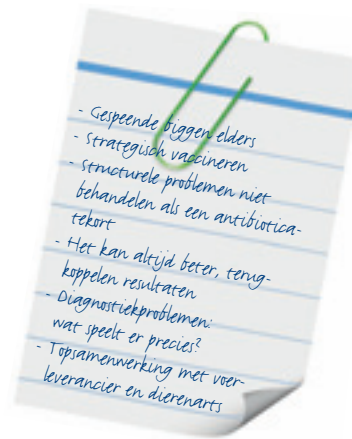 - Gespeende biggen elders
- Strategisch vaccineren
- Structurele problemen niet
behandelen als een antibiotica-
tekort
- Het kan altijd beter, terug-
koppelen resultaten
- Diagnostiekproblemen:
wat speelt er precies?
- Topsamenwerking met voer-
leverancier en dierenarts